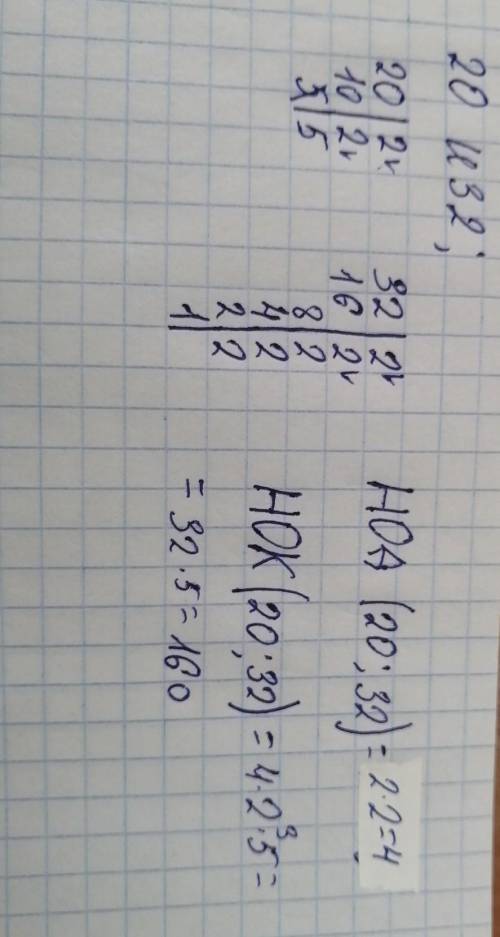 20 и 32;
20 | 2v
10 | 2v
5 | 5
32 | 2v
16 | 2v
8 | 2
4 | 2
2 | 2
1
НОД (20; 32) = 2·2=4
НОК (20; 32) = 4·2³·5=
= 32·5 = 160